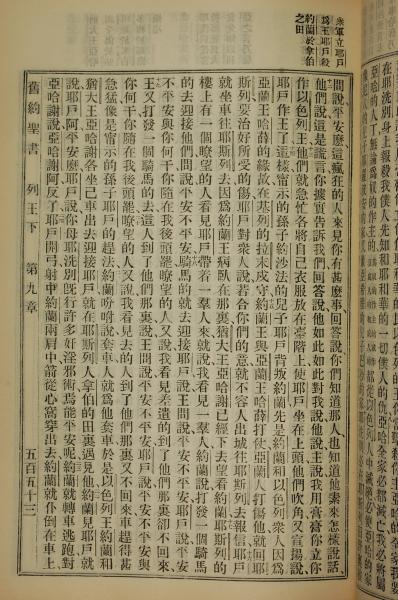 在耶洗別身上報殺我僕人先知和耶和華的一切
亞哈的人丁無論
衆軍立耶戶
爲王耶戶殺
約蘭於拿伯
之田
間說平安麼這瘋狂的人來見你有甚麼事回答說你們知道那人也知道他素來怎樣說話
他們說這是謊言你據實告訴我們回答說他如此如此對我說他說主說我用膏膏你立你
作以色列王他們就急忙各將自己衣服放在臺階上使耶戶坐在上頭他們吹角又宣揚說
耶戶作王了這樣甯示的孫子約沙法的兒子耶戶背叛約蘭先是約蘭和以色列衆人因爲
亞蘭王哈薛的緣故在基列的拉末戍守約蘭王與亞蘭王哈薛打仗亞蘭人打傷他就回耶
斯列要治好所受的傷耶戶對衆人說若合你們的意就不容人出城往耶斯列去報信耶戶
就坐車往耶斯列去因爲約蘭王病臥在那裏猶大王亞哈謝已經下去望看約蘭耶斯列城
樓上有一個瞭望的人看見耶戶帶着一羣人來就說我看見一羣人約蘭說打發一個騎馬
的去迎接他們問說平安不平安騎馬的就去迎接耶戶說王問說平安不平安耶戶說平安
不平安與你何干你隨在我後頭罷瞭望的人又說我看見差遣的到了他們那裏卻不回來
王又打發一個騎馬的去這人到了他們那裏說王問說平安不平安耶戶說平安不平安與
你何干你隨在我後頭罷瞭望的人又說我看見去的人到了他們那裏又不回來車趕得甚
急猛像是甯示的孫子耶戶的趕法約蘭吩咐說套車人就爲他套車於是以色列王約蘭和
猶大王亞哈謝各坐己車出去迎接耶戶就在耶斯列人拿伯的田裏遇見他約蘭見耶戶就
說耶戶阿平安麼耶戶說你母耶洗別旣行許多奸淫邪術焉能平安呢約蘭就轉車逃跑對
亞哈謝說亞哈謝阿反了耶戶開弓射中約蘭兩肩中箭從心窩穿出去約蘭就仆倒在車上
舊約聖書 列王下 第九章 五百五十三